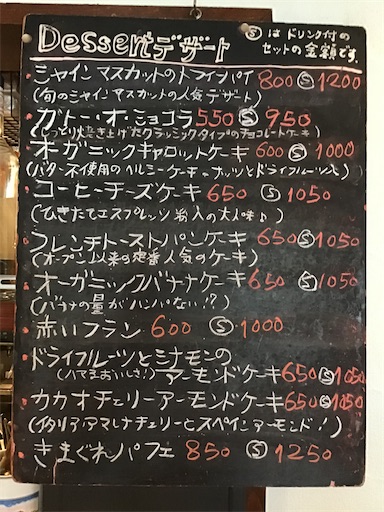 Dessert デザート
Ⓢ は ドリンク付の
セットの金額です。
シャインマスカットのトライパイ 800 Ⓢ 1200
(旬のシャインマスカットの人気デザート)
ガトー・オ・ショコラ 550 Ⓢ 950
(しっとり焼き上げたクラッシックタイプのチョコレートケーキ)
オーガニックキャロットケーキ 600 Ⓢ 1000
(バター不使用のヘルシーケーキ ナッツとドライフルーツ入)
コーヒーチーズケーキ 650 Ⓢ 1050
(ひきたてエスプレッソ粉入の大人味♪)
フレンチトーストパンケーキ 650 Ⓢ 1050
(オープン以来の定番人気のケーキ)
オーガニックバナナケーキ 650 Ⓢ 1050
(バナナの量がハンパない!?)
赤いフラン 600 Ⓢ 1000
ドライフルーツとシナモンの
(ハマるおいしさ!) アーモンドケーキ 650 Ⓢ 1050
カカオチェリーアーモンドケーキ 650 Ⓢ 1050
(イタリアアマレナチェリーとスペインアーモンド!)
きまぐれパフェ 850 Ⓢ 1250